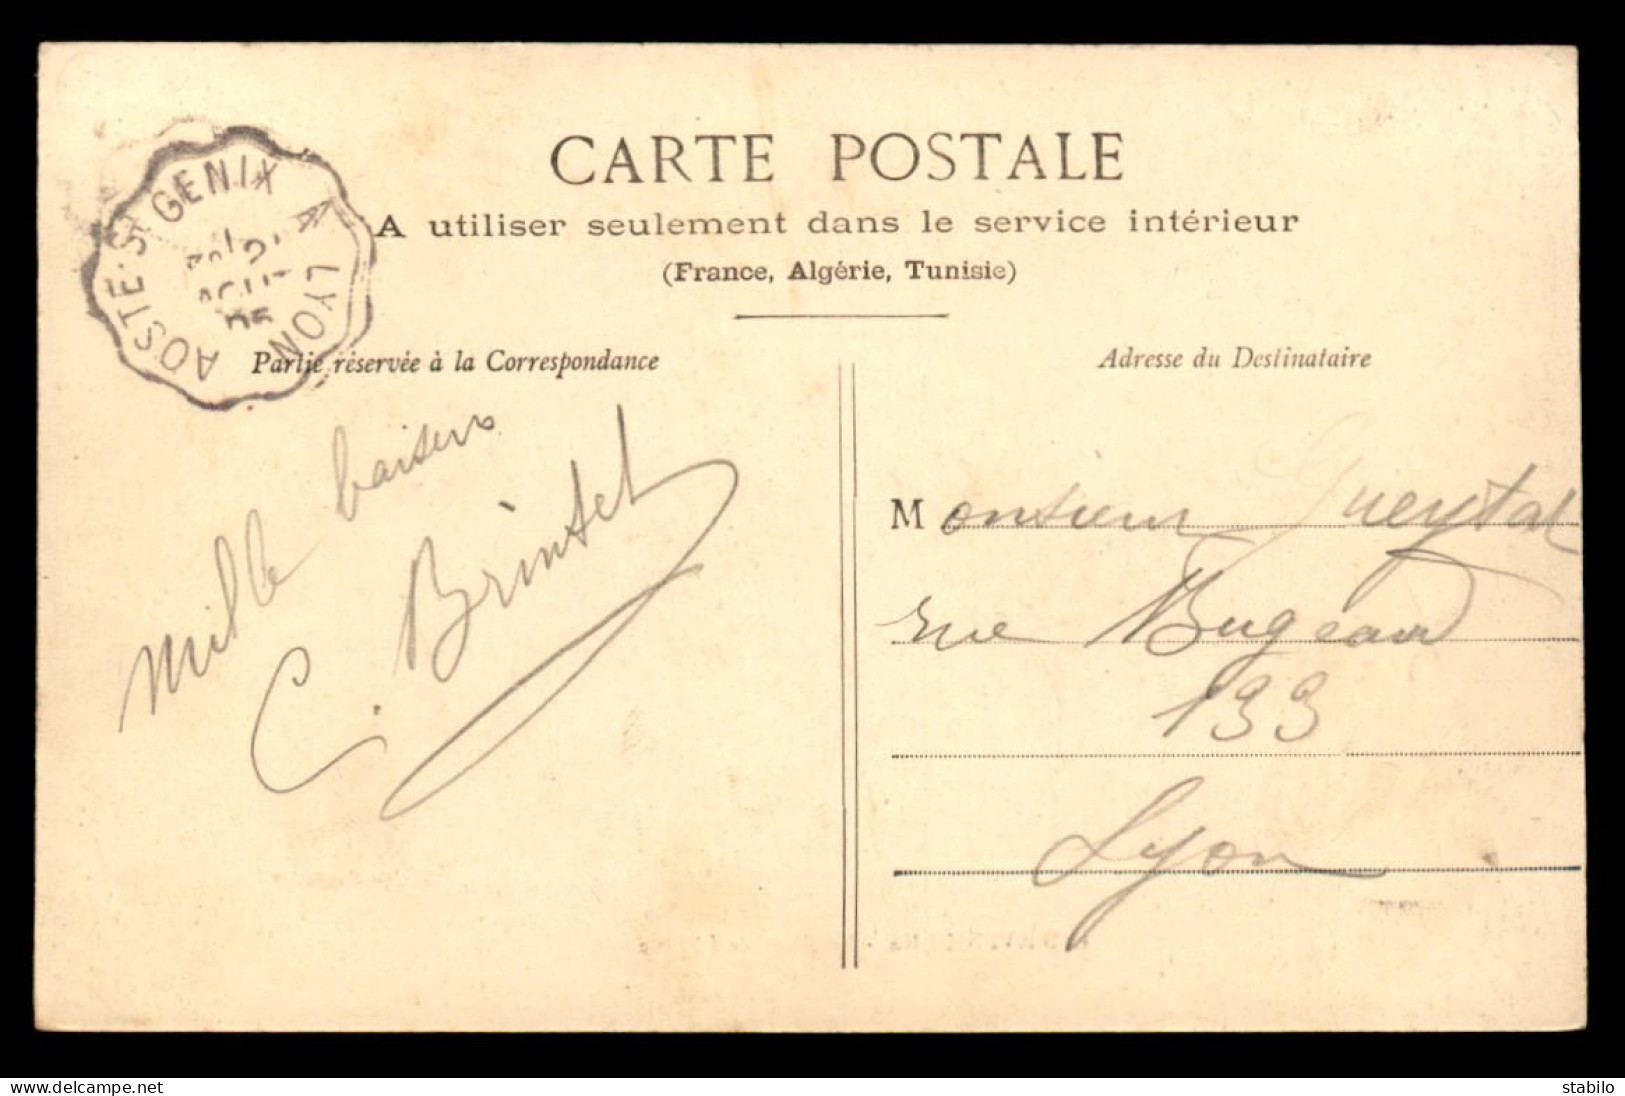 CARTE POSTALE
A utiliser seulement dans le service intérieur
(France, Algérie, Tunisie)
AOSTE-ST GENIX A LYON
AOUT
05
Partie réservée à la Correspondance
Adresse du Destinataire
Mille baisers
C.
Monsieur
rue Bugeaud
133
Lyon
www.delcampe.net
stabilo